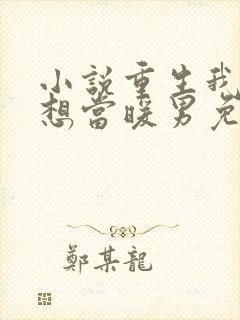 小說重生我
想當暖男免
鄭某龍